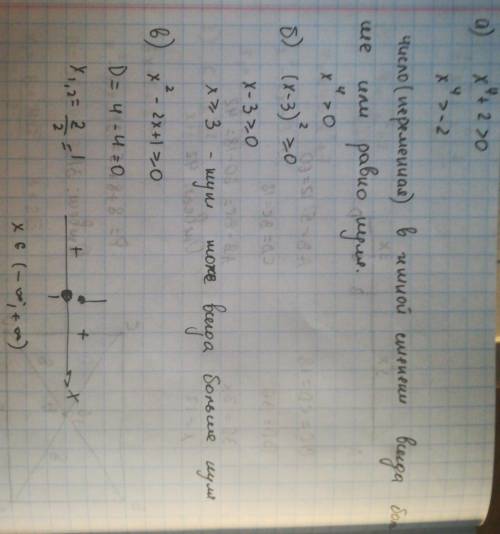 а) x⁴ + 2 > 0
x⁴ > -2
число (переменная) в чётной степени всегда бол
ше или равно нуля.
x⁴ > 0
б) (x-3)² ≥ 0
x-3 ≥ 0
x ≥ 3 - тоже всегда больше нуля
в) x² - 2x + 1 ≥ 0
D = 4 - 4 = 0
x₁,₂ = 2/2 = 1
+ 1 + x
x ∈ (-∞; +∞)